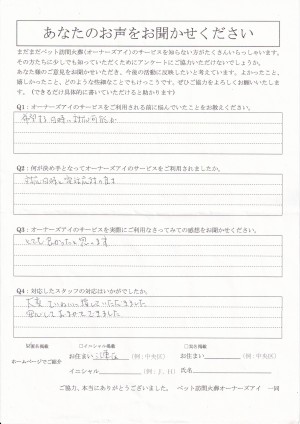 あなたのお声をお聞かせください
まだまだペット訪問火葬(オーナーズアイ)のサービスを知らない方がたくさんいらっしゃいます。
その方たちに少しでも知っていただくためにアンケートにご協力いただけないでしょうか。
あなた様のご意見をお聞かせいただき、今後の活動に反映したいと考えています。よかったこと、
嬉しかったこと、どのような些細なことでもけっこうです。ぜひご協力をよろしくお願いいたしま
す。(できるだけ具体的に書いていただけると助かります)
Q1:オーナーズアイのサービスをご利用される前に悩んでいたことをお教えください。
希望する日時に対応可能か
Q2:何が決め手となってオーナーズアイのサービスをご利用されましたか。
対応日時と
Q3:オーナーズアイのサービスを実際にご利用なさってみての感想をお聞かせください。
とても良かったと思います
Q4:対応したスタッフの対応はいかがでしたか。
大変ていねいに接していただきました
安心しておまかせできました
匿名掲載 □イニシャル掲載 □実名掲載
ホームページでご紹介
お住まい (例:中央区) お住まい (例:中央区)
イニシャル (例:J、H) 氏名
ご協力、本当にありがとうございました。 ペット訪問火葬オーナーズアイ 一同